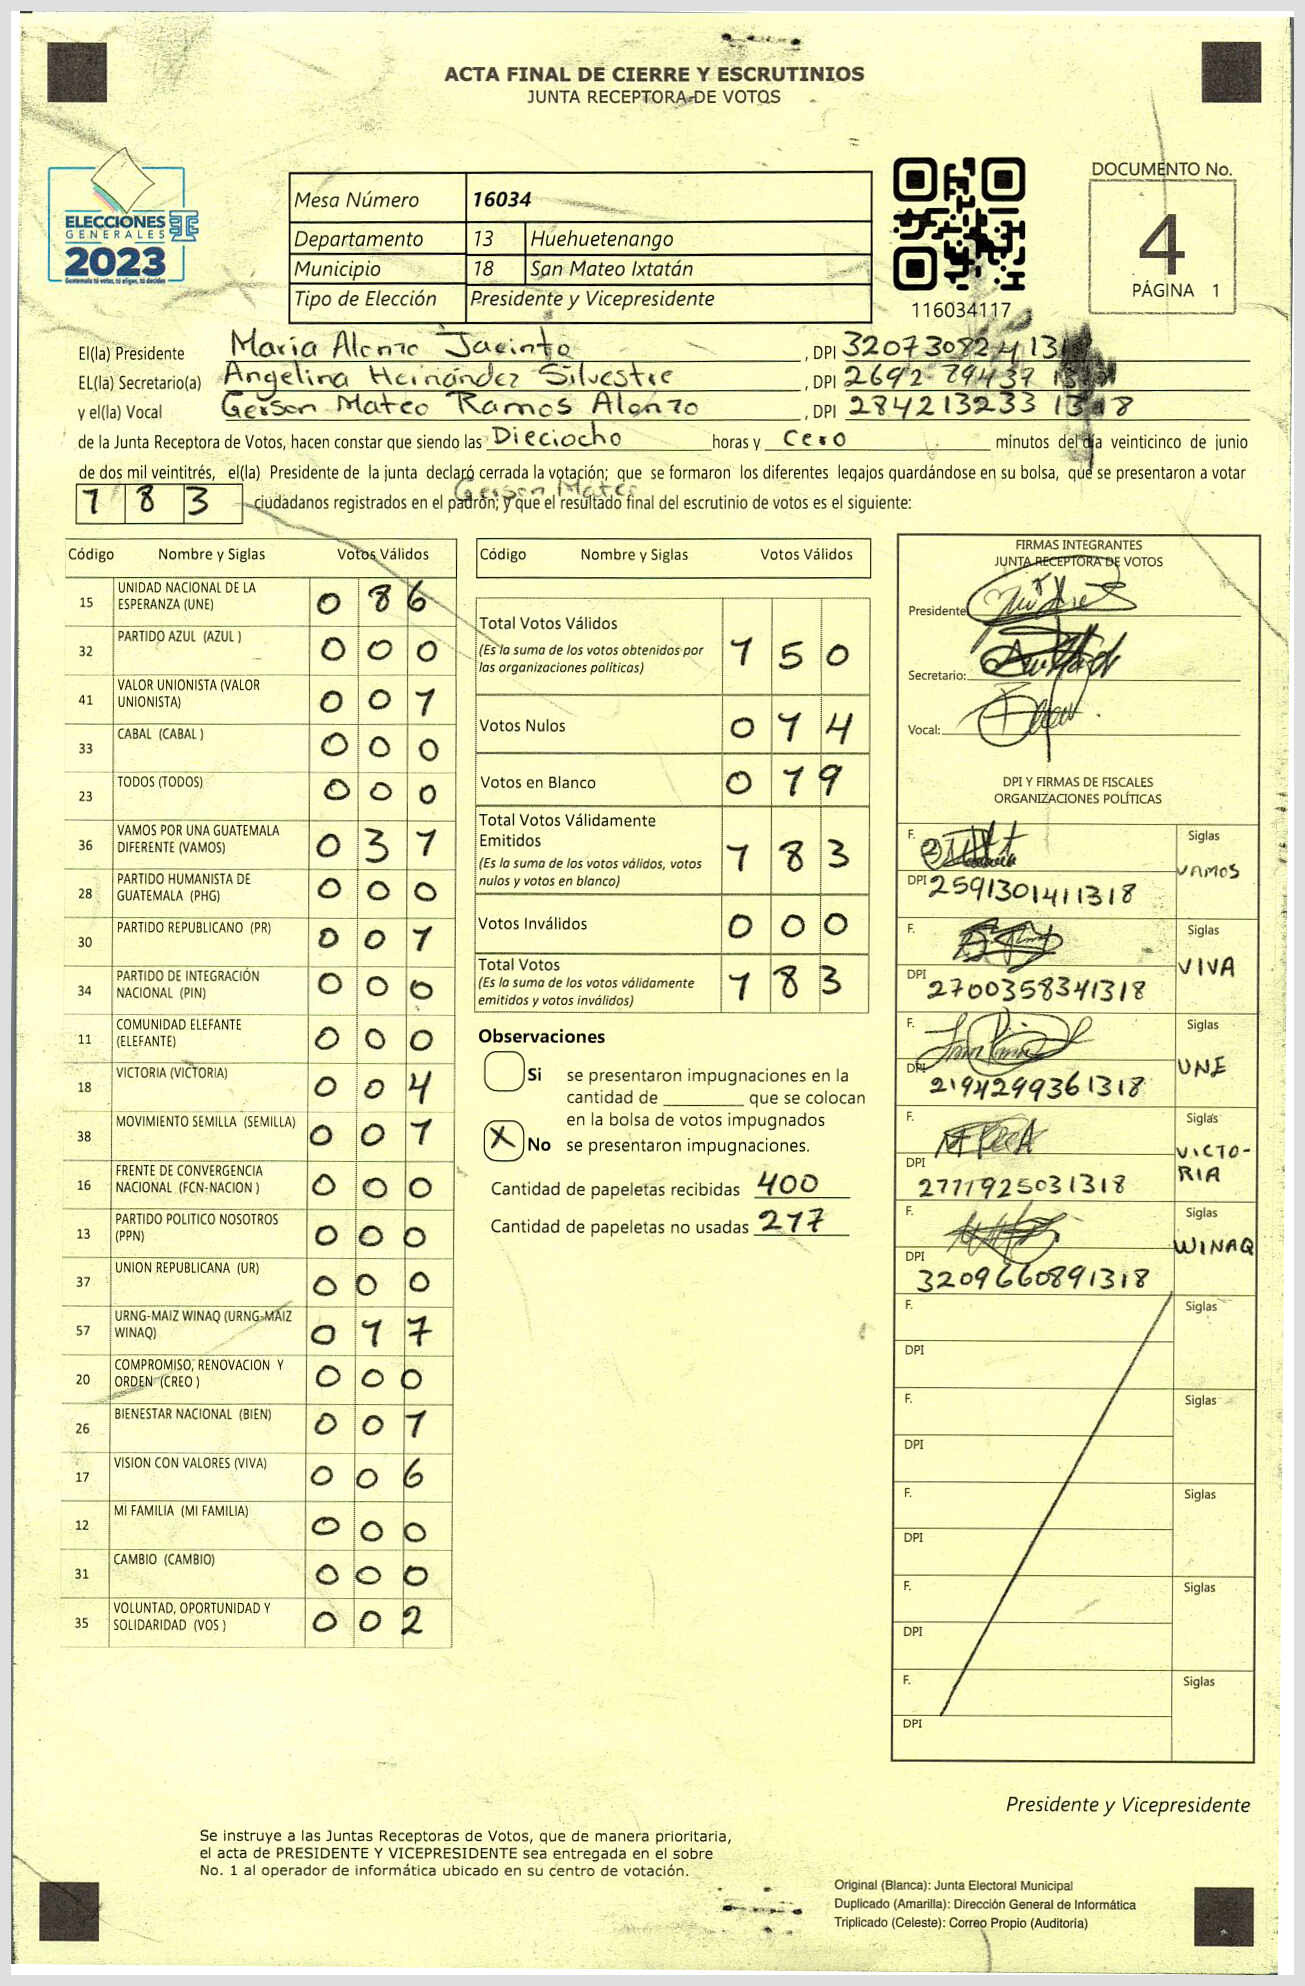 ACTA FINAL DE CIERRE Y ESCRUTINIOS
JUNTA RECEPTORA DE VOTOS
ELECCIONES
GENERALES
2023
Guatemala tú votas, tú eliges, tú decides
Mesa Número 16034
Departamento 13 Huehuetenango
Municipio 18 San Mateo Ixtatán
Tipo de Elección Presidente y Vicepresidente
116034117
DOCUMENTO No.
4
PÁGINA 1
El(la) Presidente María Alonzo Jacinto, DPI
EL(la) Secretario(a) Angelina Hernández Silvestre, DPI 2692 79437
y el(la) Vocal Gerson Mateo Ramos Alonzo, DPI 284213233 1318
de la Junta Receptora de Votos, hacen constar que siendo las Dieciocho horas y Cero minutos del día veinticinco de junio
de dos mil veintitrés, el(la) Presidente de la junta declaró cerrada la votación; que se formaron los diferentes legajos quardándose en su bolsa, que se presentaron a votar
Gerson Mateo
183 ciudadanos registrados en el padrón; y que el resultado final del escrutinio de votos es el siguiente:
Código Nombre y Siglas Votos Válidos
15 UNIDAD NACIONAL DE LA ESPERANZA (UNE) 0 8 6
32 PARTIDO AZUL (AZUL ) 0 0 0
41 VALOR UNIONISTA (VALOR UNIONISTA) 0 0 1
33 CABAL (CABAL ) 0 0 0
23 TODOS (TODOS) 0 0 0
36 VAMOS POR UNA GUATEMALA DIFERENTE (VAMOS) 0 3 1
28 PARTIDO HUMANISTA DE GUATEMALA (PHG) 0 0 0
30 PARTIDO REPUBLICANO (PR) 0 0 1
34 PARTIDO DE INTEGRACIÓN NACIONAL (PIN) 0 0 0
11 COMUNIDAD ELEFANTE (ELEFANTE) 0 0 0
18 VICTORIA (VICTORIA) 0 0 4
38 MOVIMIENTO SEMILLA (SEMILLA) 0 0 1
16 FRENTE DE CONVERGENCIA NACIONAL (FCN-NACION ) 0 0 0
13 PARTIDO POLITICO NOSOTROS (PPN) 0 0 0
37 UNION REPUBLICANA (UR) 0 0 0
57 URNG-MAIZ WINAQ (URNG-MAIZ WINAQ) 0 1 7
20 COMPROMISO, RENOVACION Y ORDEN (CREO ) 0 0 0
26 BIENESTAR NACIONAL (BIEN) 0 0 1
17 VISION CON VALORES (VIVA) 0 0 6
12 MI FAMILIA (MI FAMILIA) 0 0 0
31 CAMBIO (CAMBIO) 0 0 0
35 VOLUNTAD, OPORTUNIDAD Y SOLIDARIDAD (VOS ) 0 0 2
Código Nombre y Siglas Votos Válidos
Total Votos Válidos 1 5 0
(Es la suma de los votos obtenidos por
las organizaciones políticas)
Votos Nulos 0 1 4
Votos en Blanco 0 1 9
Total Votos Válidamente
Emitidos 1 8 3
(Es la suma de los votos válidos, votos
nulos y votos en blanco)
Votos Inválidos 0 0 0
Total Votos 1 8 3
(Es la suma de los votos válidamente
emitidos y votos inválidos)
Observaciones
Si se presentaron impugnaciones en la
cantidad de ________ que se colocan
en la bolsa de votos impugnados
X No se presentaron impugnaciones.
Cantidad de papeletas recibidas 400
Cantidad de papeletas no usadas 217
FIRMAS INTEGRANTES
JUNTA RECEPTORA DE VOTOS
Presidente:
Secretario:
Vocal:
DPI Y FIRMAS DE FISCALES
ORGANIZACIONES POLÍTICAS
F. Siglas
VAMOS
DPI 2591301411318
F. Siglas
VIVA
DPI 2700358341318
F. Siglas
UNE
DPI 2194299361318
F. Siglas
VICTO-
RIA
DPI 2771925031318
F. Siglas
WINAQ
DPI 3209660891318
F. Siglas
DPI
F. Siglas
DPI
F. Siglas
DPI
F. Siglas
DPI
F. Siglas
DPI
Presidente y Vicepresidente
Se instruye a las Juntas Receptoras de Votos, que de manera prioritaria,
el acta de PRESIDENTE Y VICEPRESIDENTE sea entregada en el sobre
No. 1 al operador de informática ubicado en su centro de votación.
Original (Blanca): Junta Electoral Municipal
Duplicado (Amarilla): Dirección General de Informática
Triplicado (Celeste): Correo Propio (Auditoría)